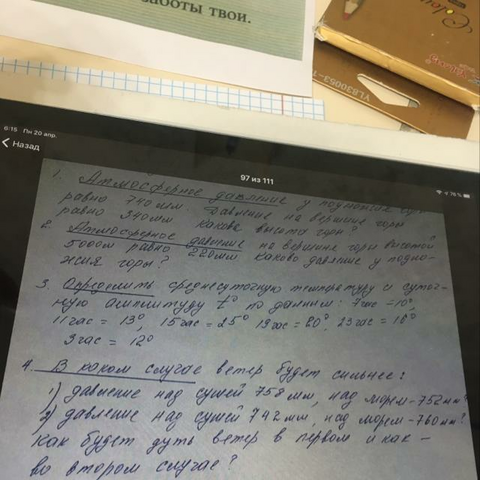 заботы твои.
Colour
YL830053-1
6:15 Пн 20 апр.
74 %
Назад
97 из 111
1. Атмосферное давление у подножия горы
равно 740 мм. давление на вершине горы
равно 340мм какова высота горы?
2. Атмосферное давление на вершине горы высотой
5000м равно 220мм каково давление у подно-
жия горы?
3. Определить среднесуточную температуру и суточ-
ную амплитуду t° по данным: 7час = 10°,
11час = 13°, 15час = 25° 19час = 20°, 23час = 16°
3час = 12°
4. В каком случае ветер будет сильнее:
1) давление над сушей 758 мм, над морем - 752 мм?
2) давление над сушей 742 мм, над морем - 760 мм?
Как будет дуть ветер в первом и как -
во втором случае?